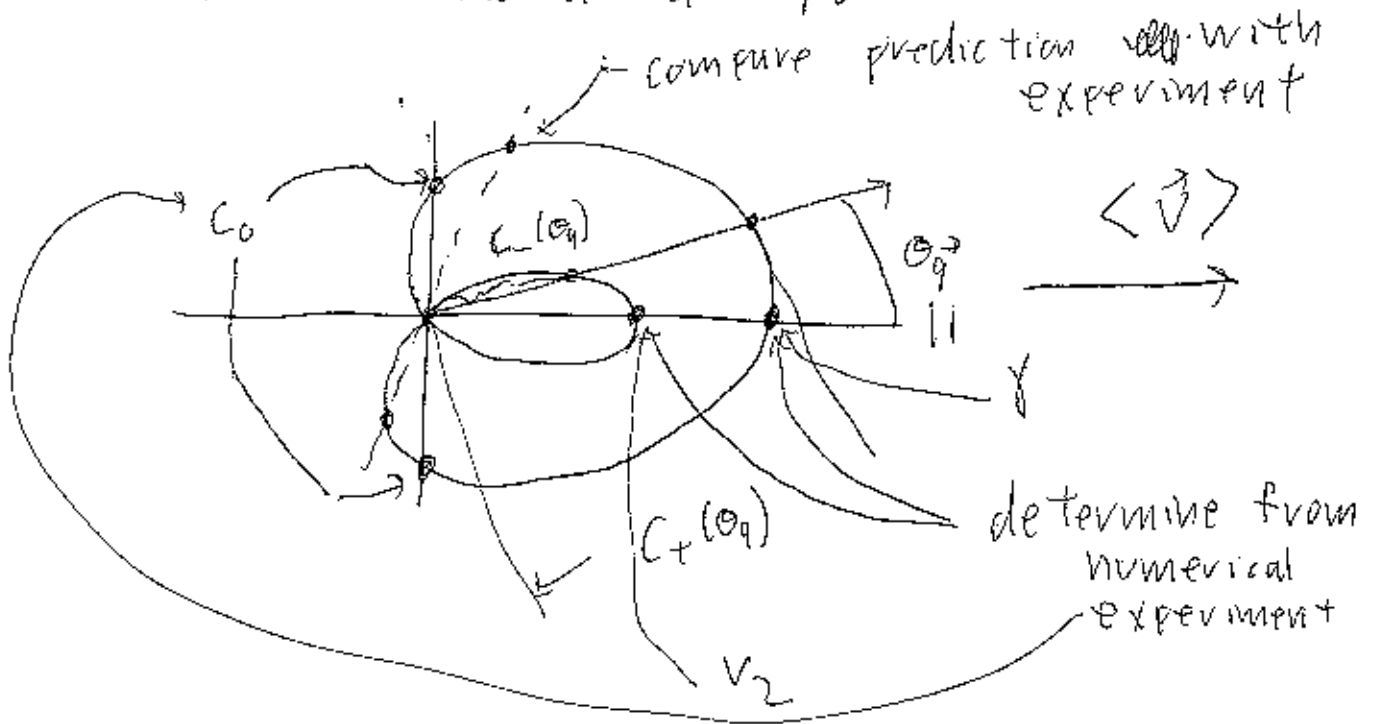 compare prediction with
experiment
C₀
C₋(θq)
θ_q⃗
<v⃗>
||
γ
C₊(θq)
determine from
numerical
experiment
V₂